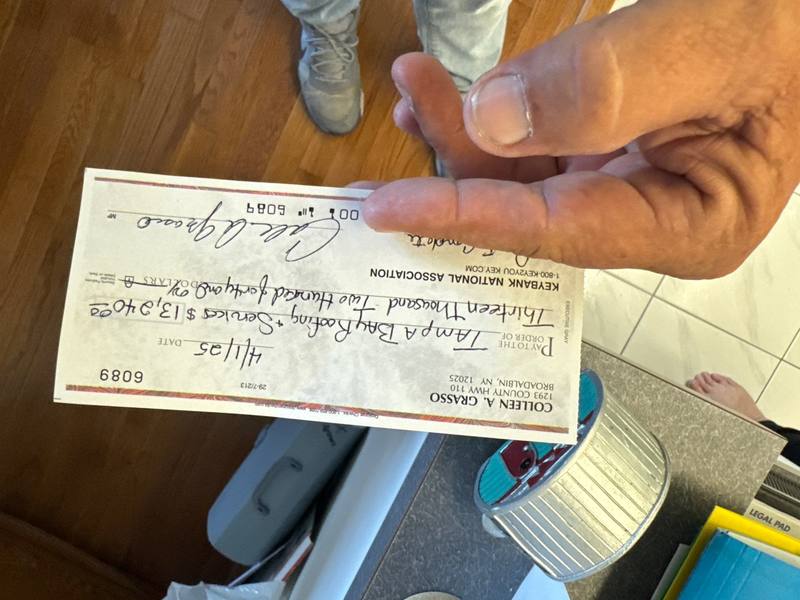 COLLEEN A. GRASSO
1293 COUNTY HWY 110
BROADALBIN, NY 12025
6089
29-7/213
4/1/25 DATE
PAY TO THE ORDER OF Tampa Bay Roofing + Services $ 13,240.00
Thirteen Thousand Two Hundred forty and DOLLARS
KEYBANK NATIONAL ASSOCIATION
1-800-KEY2YOU KEY.COM
MP
6089
EXECUTIVE GRAY
LEGAL PAD